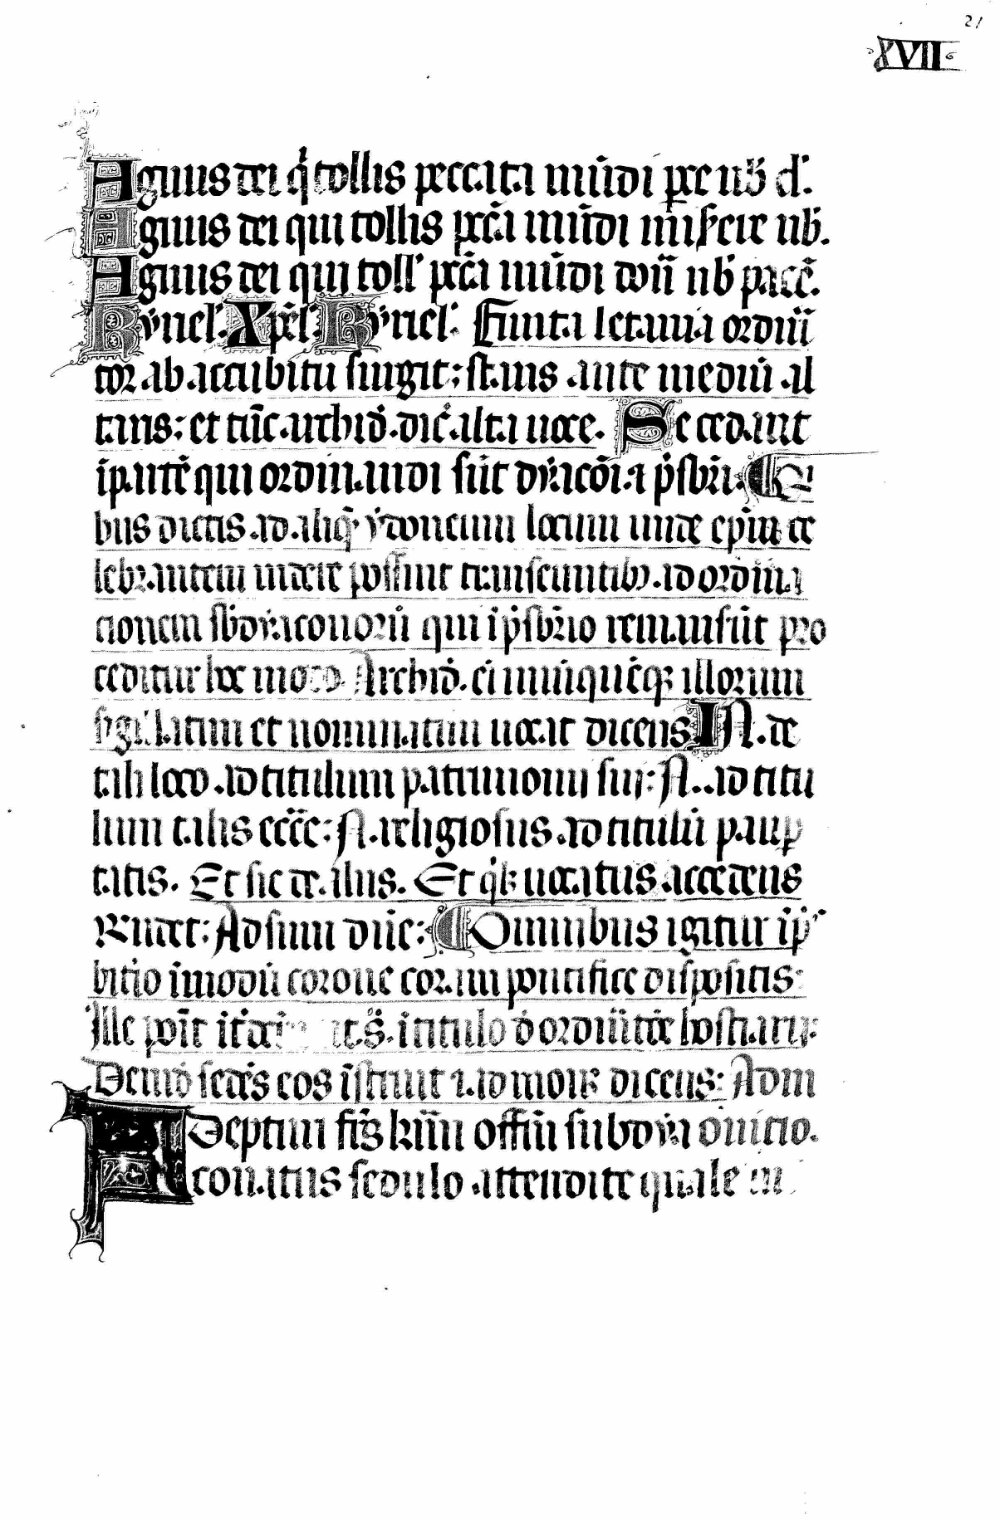 21
XVII
Agnus dei q̇ tollis peccata mūdi parce nob̄ d'.
Agnus dei qui tollis pctā mūdi miserere nb̄.
Agnus dei qui toll' pctā mūdi dona nb̄ pacē.
Kyriel'. Xpel'. Kyriel'. Finita letania ordināt
tor ab accubitu surgit; stans ante mediū al
taris; et tūc archid̄. dic̄. alta uoce. Secedant
ī partē qui ordinandi sūt dyacōi ⁊ p̄sbr̄i. Qui
bus dictis ad aliq̄ ydoneum locum unde epm̄ ce
lebrantem uidere possint transeuntibȝ ad ordina
cionem sb̄dyaconorū qui ī p̄sbr̄io remansūt pro
ceditur hoc modo Archid̄. eī unūquēqȝ illorum
sigi.latim et nominatim uocat dicens N. de
tali loco ad titulum patrimonii sui: N. ad titu
lum talis ecc̄e: N. religiosus ad titulū paup̱
tatis. Et sic de aliis. Et q̇lȝ uocatus accedens
Rūdet: Adsum dn̄e: Omnibus igitur ī p̄s
bit̄io ī modū corone coram pontifice dispositis:
Ille
Demū sedēs eos īstruit ⁊ admonȝ dicens: Adm
Adepturi
conatus sedulo attendite quale